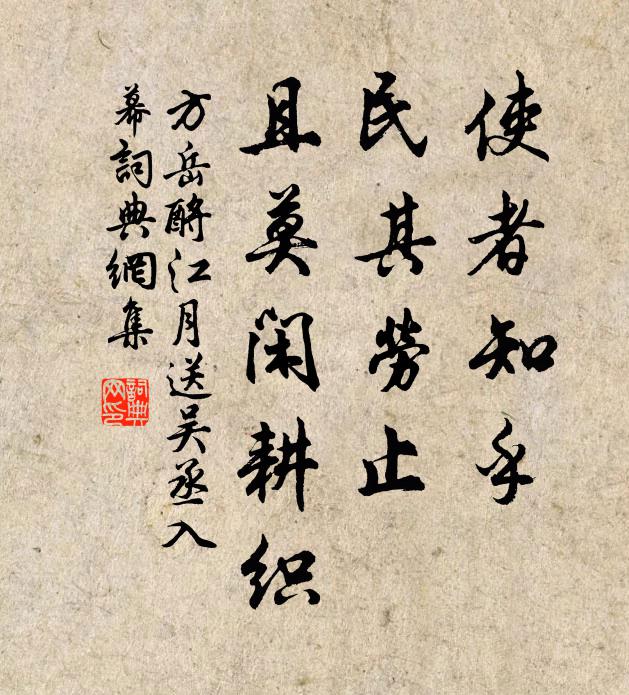 使者知乎
民其劳止
且莫闲耕织
方岳酹江月送吴丞入
幕词典網集
詞典网印